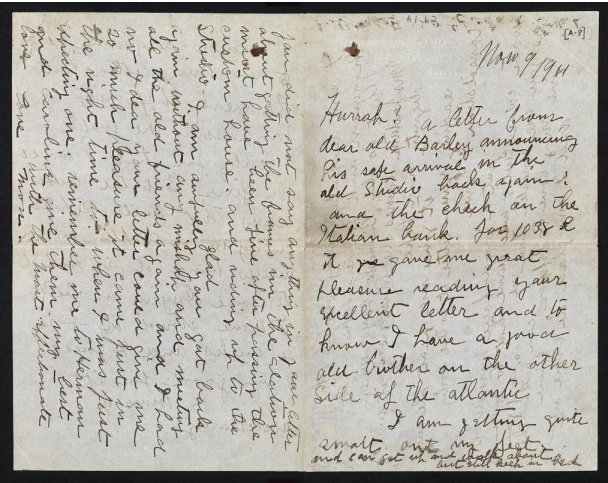 [A-8]
Nov 9/1911
Hurrah! a letter from
dear old Barley announcing
his safe arrival in the
old Studio back again.
and the check on the
Italian bank. for 1038 £
it gave me great
pleasure reading your
excellent letter and to
know I have a good
old brother on the other
side of the atlantic
I am getting quite
smart on my feet
and can get up and walk about
but still keep in bed
You did not say anything in your letter
about getting the frames in the
must have been fine after passing the
custom house. and riding up to the
Studio I am awfully glad you got back
again without any mishap and meeting
all the old friends again and I had
no I dear your letter could give me
so much pleasure it came just in
the right time when I was just
expecting one. remember me to Herman
and Caroline give them my best
love with the most affectionate